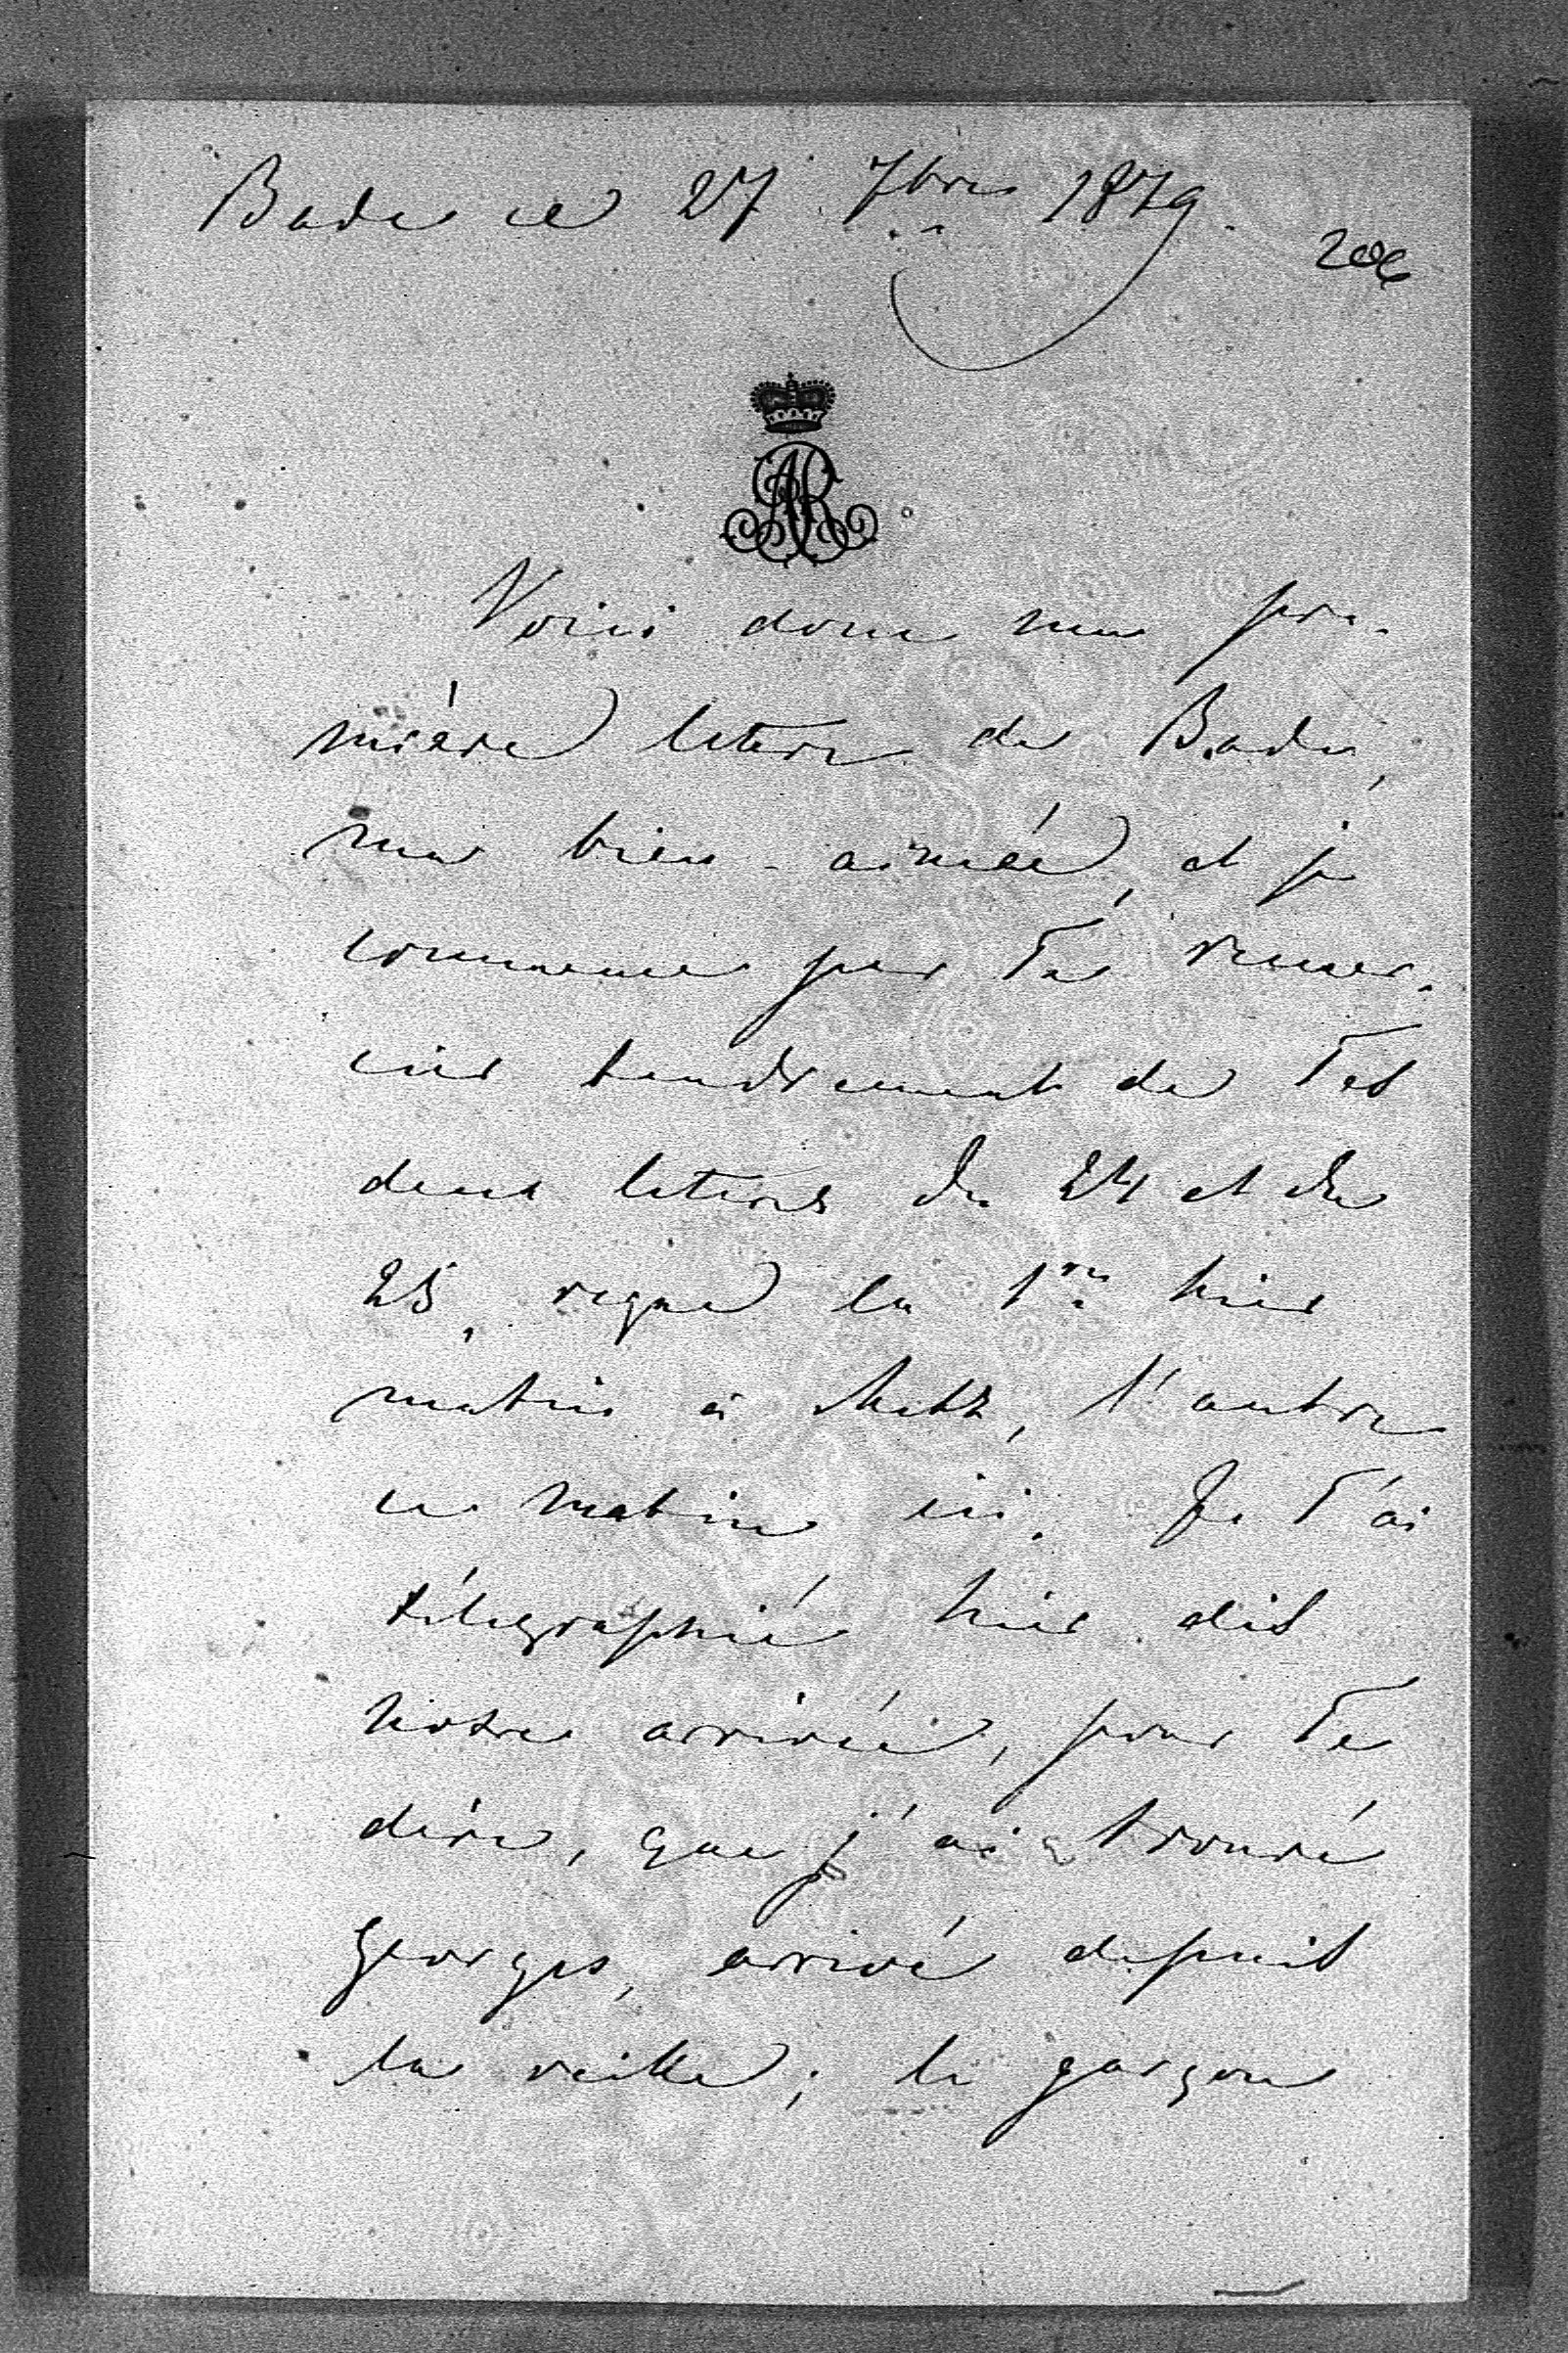 Bade ce 27 7bre 1879.
206
AR
Voici donc ma pre-
mière lettre de Bade,
ma bien-aimée, et je
commence par Te remer-
cier tendrement de Tes
deux lettres du 24 et du
25, reçue la 1re hier
matin à Metz, l'autre
ce matin ici. Je T'ai
télegraphié hier dès
notre arrivée, pour Te
dire, que j'ai trouvé
Georges, arrivé depuis
la veille; le garçon